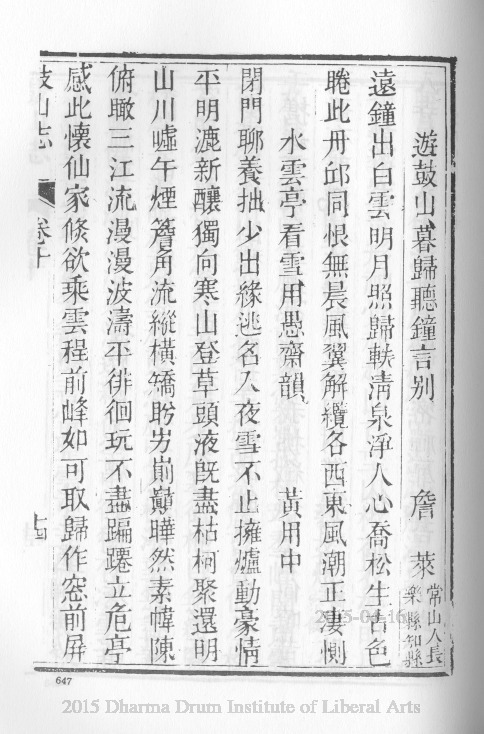 遊鼓山暮歸聽鐘言別　詹萊常山人長樂縣知縣
遠鐘出白雲明月照歸軼淸泉淨人心喬松生古色
睠此丹邱同恨無晨風翼解纜各西東風潮正凄惻
水雲亭看雪用愚齋韻　黃用中
閉門聊養拙少出緣逃名入夜雪不止擁爐動豪情
平明漉新釀獨向寒山登草頭液旣盡枯柯聚還明
山川噓午煙簷角流縱橫矯盻岃崱巔曄然素幃陳
俯瞰三江流漫漫波濤平徘徊玩不盡蹁躚立危亭
感此懷仙家倏欲乘雲程前峰如可取歸作窓前屏
鼓山志　卷十　十四
647
2015-04-16
2015 Dharma Drum Institute of Liberal Arts